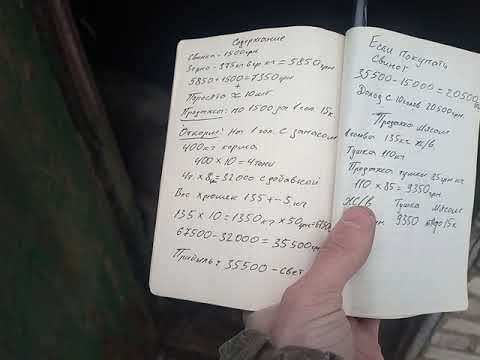 Содержание
Свинка - 1500грн
Зерно - 975кг 6гр кг = 5850грн
5850 + 1500 = 7350грн
+
Поросята ≈ 10шт
Продажа: по 1500 за гол. 15к.
Откорм: На 1 гол. с запасом
400кг корма
400 × 10 = 4тонн
4т. × 8р = 32000 с добавкой
Вес хрюшек 135 +- 5 кг
135 × 10 = 1350кг × 50грн = 6750
67500 - 32000 = 35500грн
Прибыль = 35500 - свет
Если покупать
Свинот
35500 - 15000 = 20500
Доход с 10голов 20500грн.
Продажа мясом
135кг ж/в
Тушка 110кг
Продажа тушки 85грн кг
110 × 85 = 9350грн
Ж/В Тушка Мясом
9350